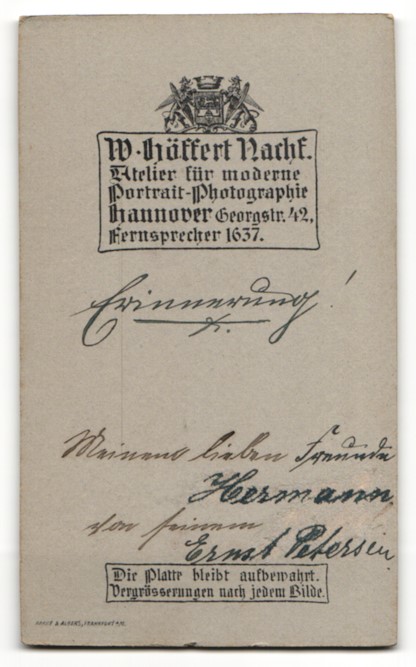 W. Höffert Nachf.
Atelier für moderne
Portrait-Photographie
Hannover Georgstr. 42,
Fernsprecher 1637.
Erinnerung!
Meinem lieben Freunde
Hermann
von seinem
Ernst Petersen
Die Platte bleibt aufbewahrt.
Vergrösserungen nach jedem Bilde.